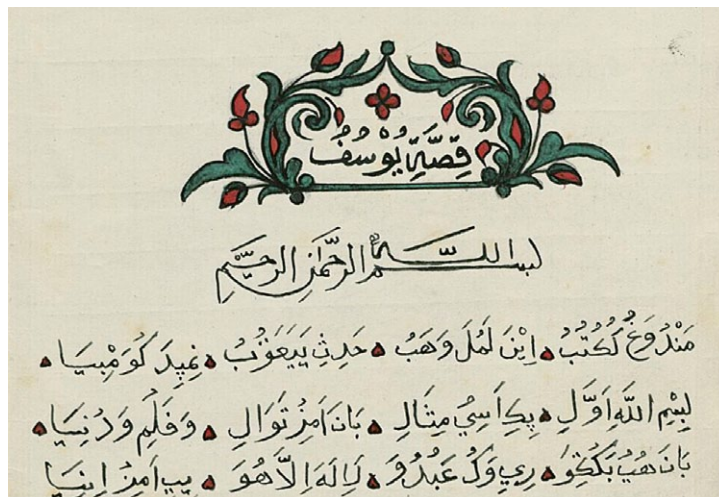 قِصَّةِ يُوسُفُ
بسم الله الرَّحْمَٰنِ الرَّحِيْمِ
مَنْدُوغُ كُكُتُبُ ▲ اِيْنَ لَمُلَ وَهَبُ ▲ حَدِثِ يَيَعَقُوْبُ ▲ نِمِپِدَ كُوَمْبِيَا ▲
لِبِسْمِ اللَّهِ اَوَّلِ ▲ پِكِ اَسِيُ مِثَالِ ▲ بَانَ اَمِزُ تَوَالِ ▲ وَفَلِمِ وَدُنِيَا ▲
بَانَ هُبُ ▲ وَكُ عَبُدُوَ ▲ لَااِلَهَ اِلَّا هُوَ ▲ اَمِزُ اِنِيَا